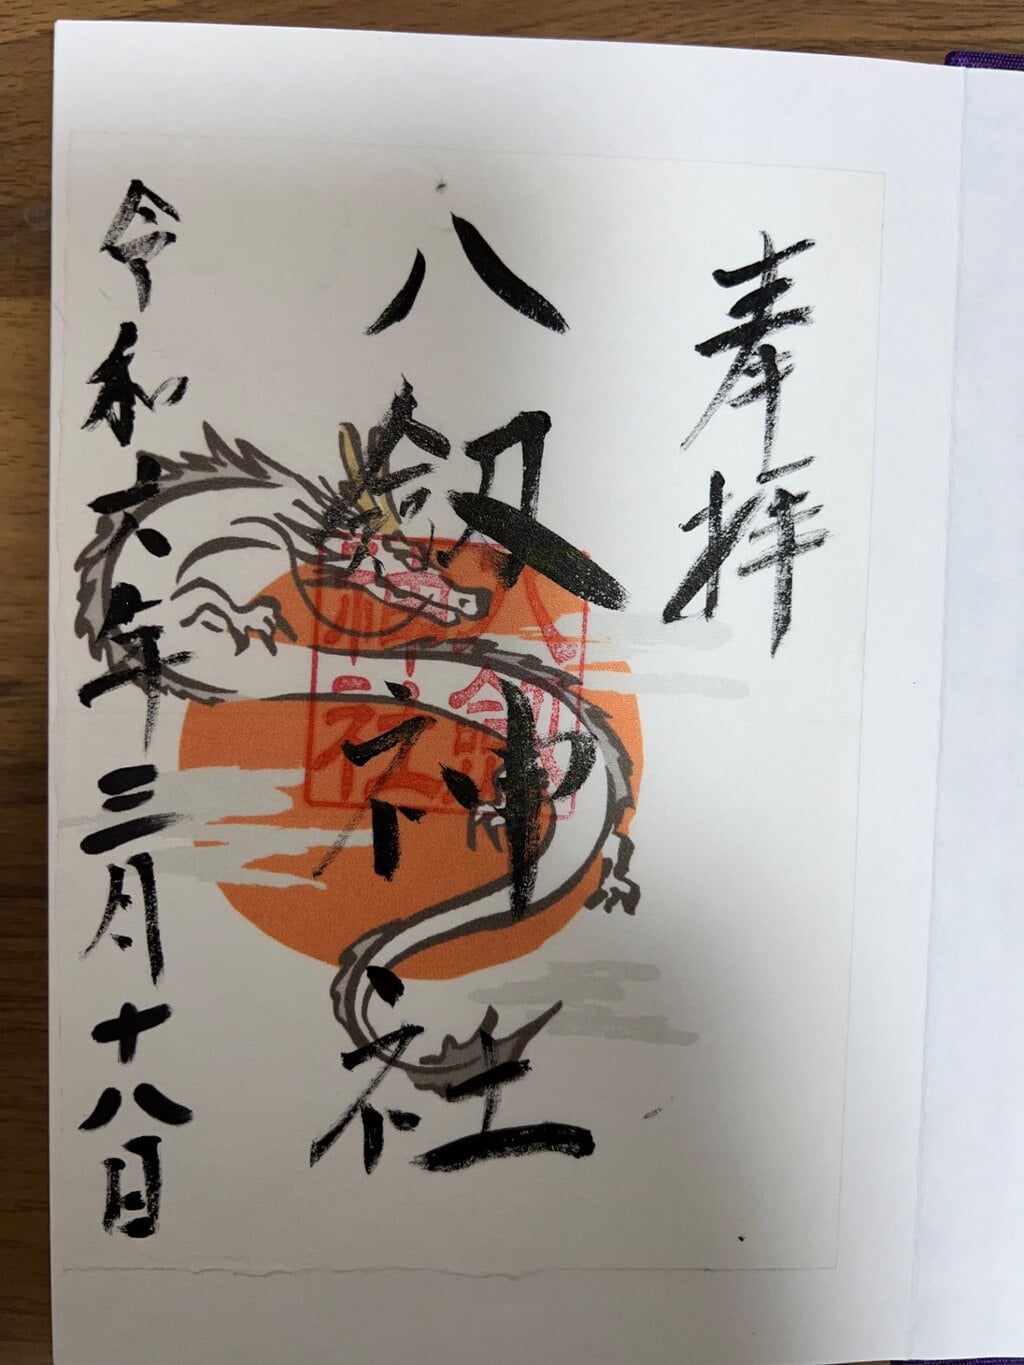 奉拝
八剱神社
八剱
神社
令和六年三月十八日